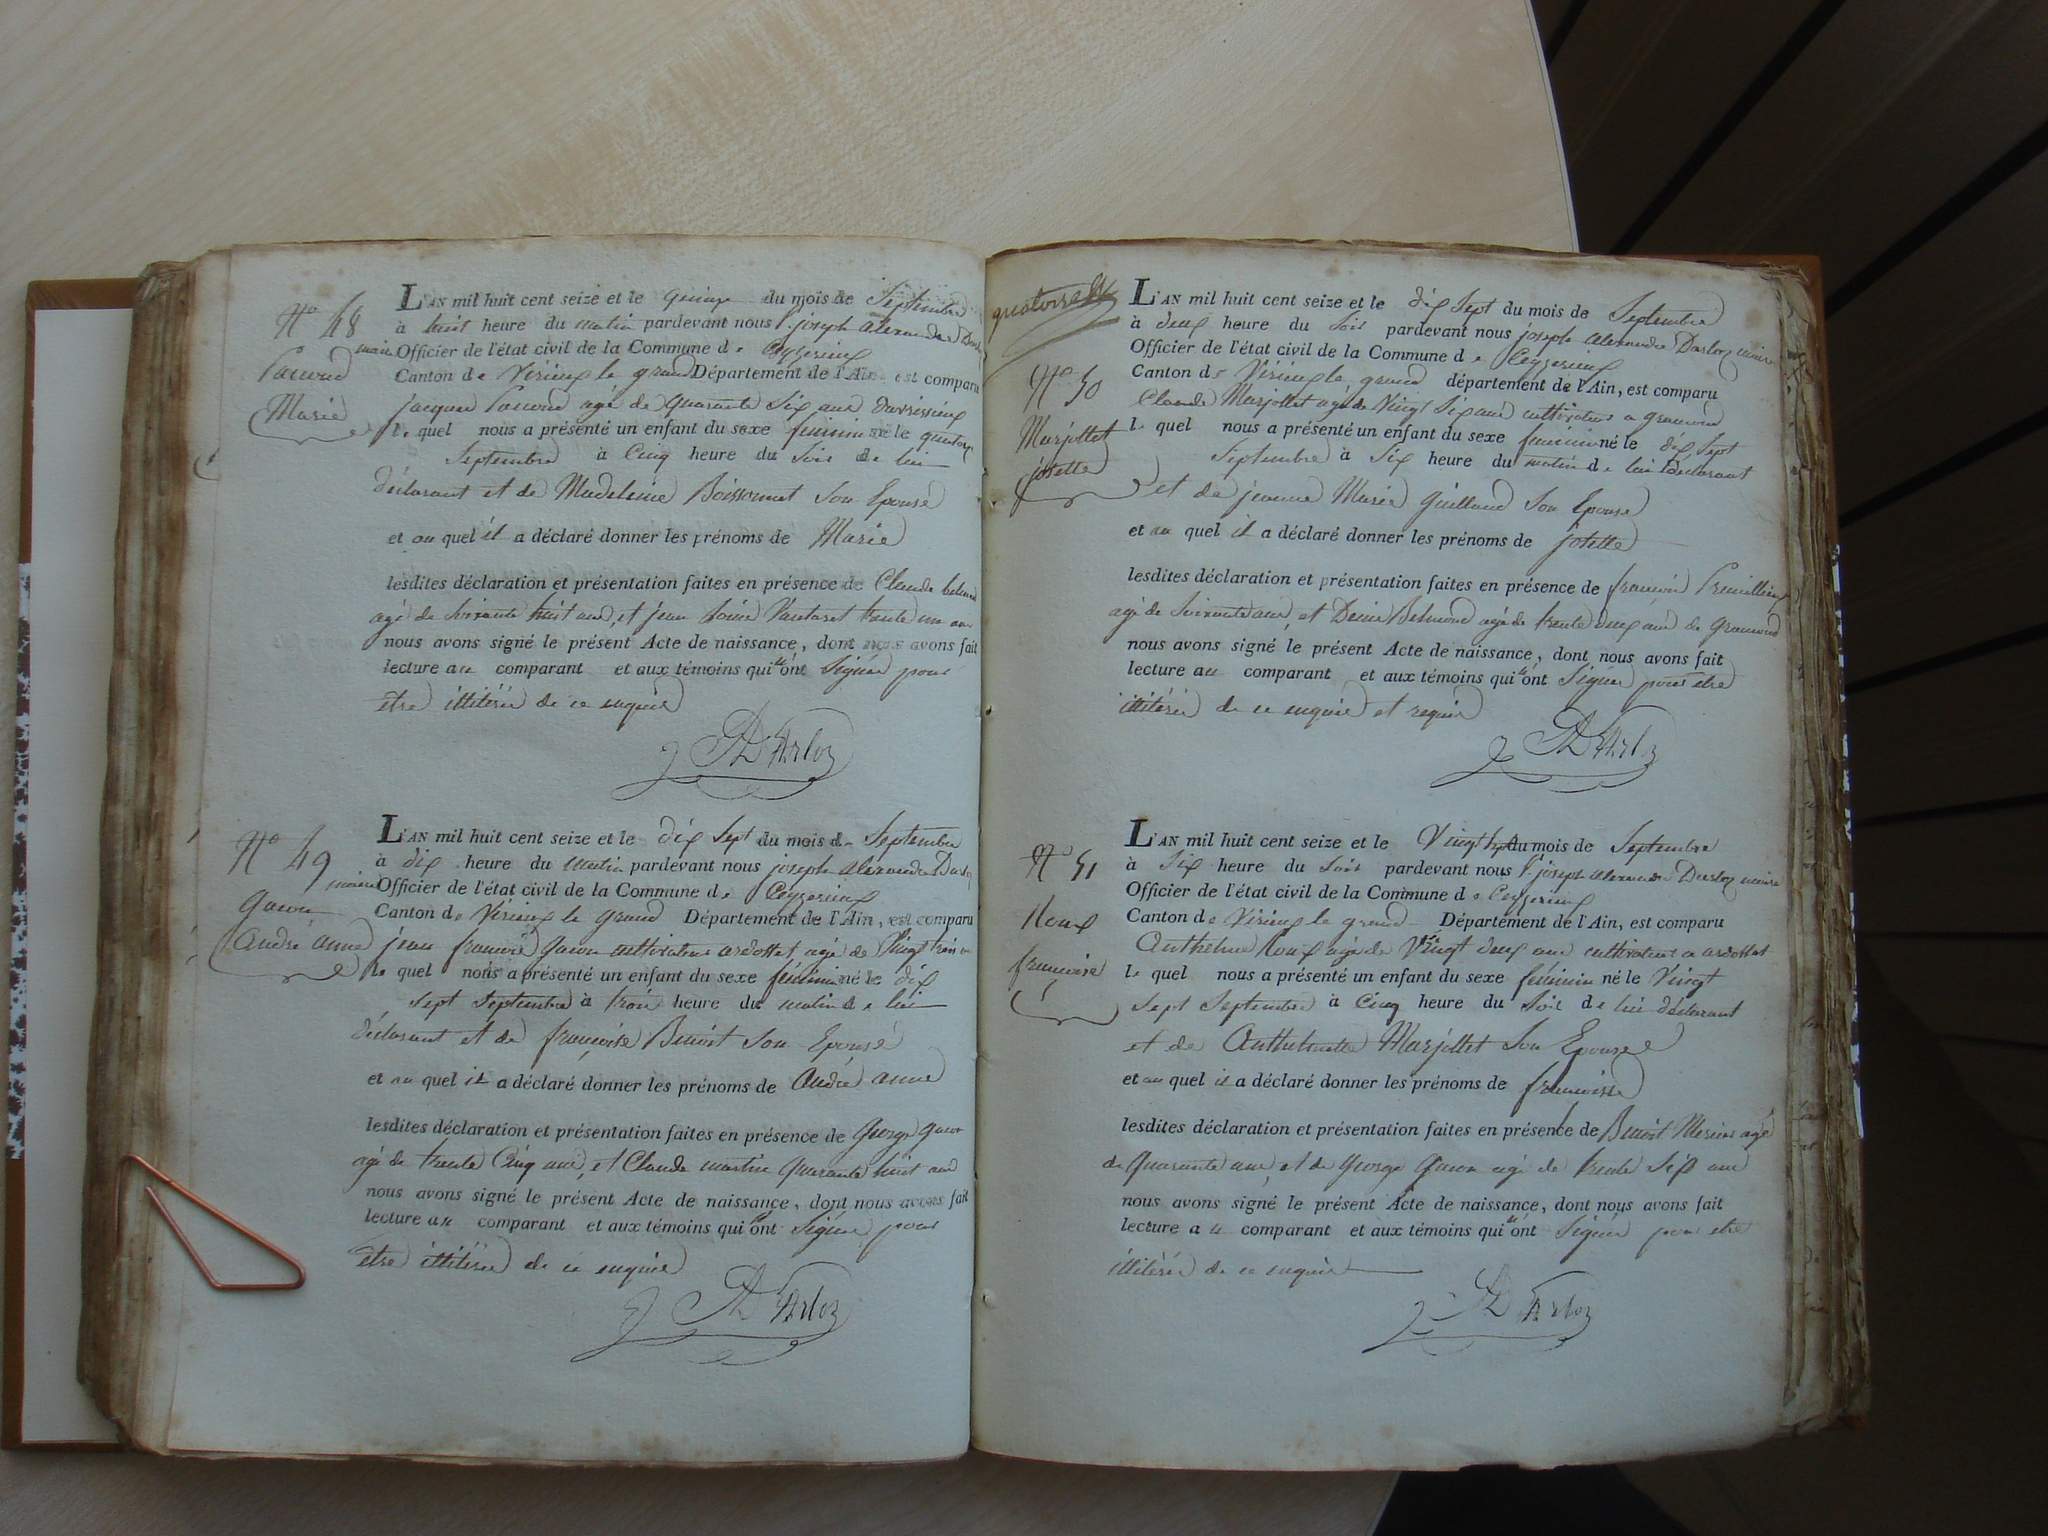 N° 48
Marie
L'AN mil huit cent seize et le quinze du mois de Septembre
à huit heure du matin pardevant nous joseph alexandre
maire Officier de l'état civil de la Commune de Ceyzerieux
Canton de Virieux le grand Département de l'Ain, est comparu
jacques agé de quarante Six ans
le quel nous a présenté un enfant du sexe feminin né le quatorze
Septembre à Cinq heure du Soir de lui
déclarant et de Madeleine Boissonnet Son Epouse
et au quel il a déclaré donner les prénoms de Marie
lesdites déclaration et présentation faites en présence de Claude
agé de Soixante huit ans, et jean trente un
nous avons signé le présent Acte de naissance, dont nous avons fait
lecture au comparant et aux témoins qui ont Signés pour
etre illitérés de ce enquis
D'Arloz
N° 49
gacon
André anne
L'AN mil huit cent seize et le dix Sept du mois de Septembre
à dix heure du matin pardevant nous joseph alexandre Darloz
maire Officier de l'état civil de la Commune de Ceyzerieux
Canton de Virieux le grand Département de l'Ain, est comparu
jean françois gacon cultivateur ardosset agé de Vingt trois
le quel nous a présenté un enfant du sexe féminin né le dix
sept septembre à trois heure du matin de lui
déclarant et de françoise Benoit Son Epouse
et au quel il a déclaré donner les prénoms de André anne
lesdites déclaration et présentation faites en présence de George gacon
agé de trente Cinq ans, et Claude martin quarante huit ans
nous avons signé le présent Acte de naissance, dont nous avons fait
lecture au comparant et aux témoins qui ont Signés pour
etre illitérés de ce enquis
D'Arloz
quatorze
N° 50
Marjollet
josette
L'AN mil huit cent seize et le dix Sept du mois de Septembre
à deux heure du Soir pardevant nous joseph alexandre Darloz maire
Officier de l'état civil de la Commune de Ceyzerieux
Canton de Virieux le grand département de l'Ain, est comparu
Claude Marjollet agé de Vingt Six ans cultivateur a
le quel nous a présenté un enfant du sexe féminin né le dix Sept
Septembre à Six heure du matin de lui déclarant
et de jeanne Marie Guilland Son Epouse
et au quel il a déclaré donner les prénoms de josette
lesdites déclaration et présentation faites en présence de françois
agé de Soixante ans, et Denis Belmond agé de trente deux ans de
nous avons signé le présent Acte de naissance, dont nous avons fait
lecture au comparant et aux témoins qui ont Signés pour etre
illitérés de ce enquis et requis
D'Arloz
N° 51
Roux
françoise
L'AN mil huit cent seize et le Vingt sept du mois de Septembre
à Six heure du Soir pardevant nous joseph alexandre Darloz maire
Officier de l'état civil de la Commune de Ceyzerieux
Canton de Virieux le grand Département de l'Ain, est comparu
Anthelme Roux agé de Vingt deux ans cultivateur a ardosset
le quel nous a présenté un enfant du sexe féminin né le Vingt
Sept Septembre à Cinq heure du Soir de lui déclarant
et de Marjollet Son Epouse
et au quel il a déclaré donner les prénoms de françoise
lesdites déclaration et présentation faites en présence de Benoit agé
de Quarante ans, et de George Gacon agé de trente Six ans
nous avons signé le présent Acte de naissance, dont nous avons fait
lecture au comparant et aux témoins qui ont Signés pour etre
illitérés de ce enquis
D'Arloz